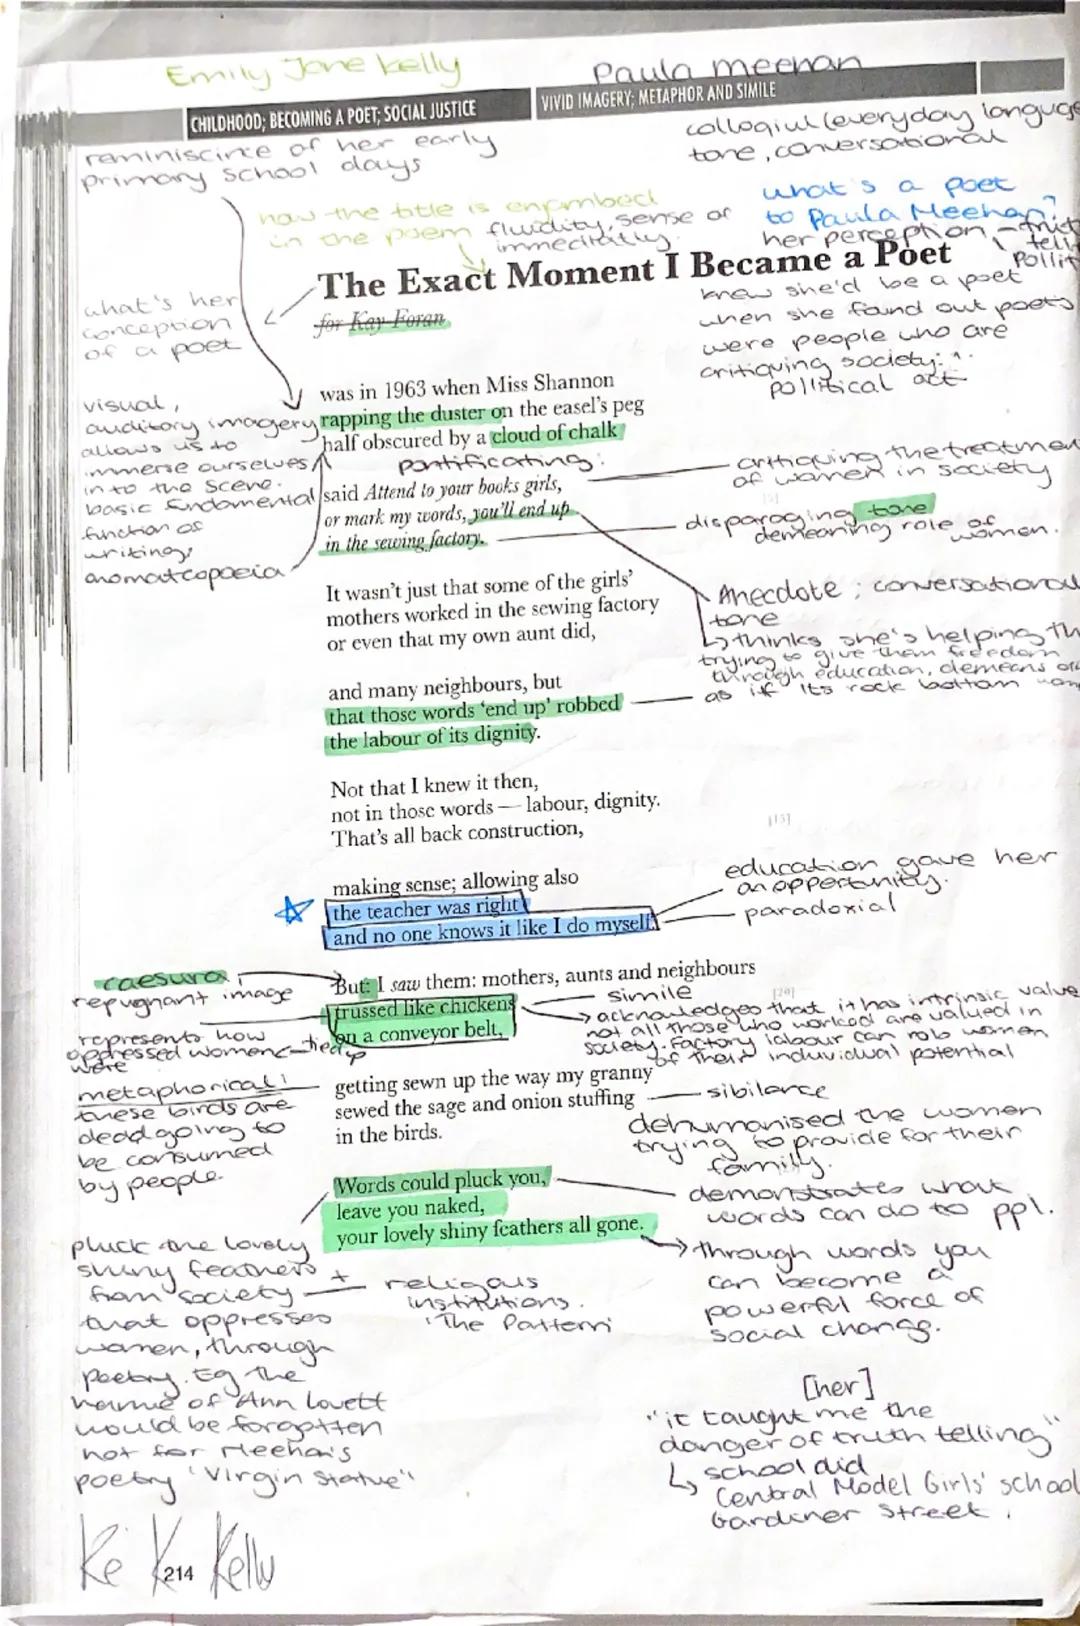 Emily Jane Kelly
Paula Meehan
CHILDHOOD; BECOMING A POET; SOCIAL JUSTICE
VIVID IMAGERY; METAPHOR AND SIMILE
reminiscince of her early
primary school days
colloqiul (everyday language
tone, conversational
how the title is
in the poem
fluidity, sense of
immeditatly.
what's a poet
to Paula Meehan?
her perception -
The Exact Moment I Became a Poet
for Kay Foran
knew she'd be a poet
when she found out poets
were people who are
critiquing society:
pollitical act
what's her
conception
of a poet
visual,
auditory imagery
allows us to
immerse ourselves
in to the scene.
basic fundamental
function of
writing;
onomatcopoeia
was in 1963 when Miss Shannon
rapping the duster on the easel's peg
half obscured by a cloud of chalk
pontificating:
said Attend to your books girls,
or mark my words, you'll end up
in the sewing factory.
critiquing the treatmen
of women in society
[5]
disparaging tone
demeaning role of
women.
Anecdote; conversational
tone
↳ thinks she's helping th
trying to give them freedom
through education, demeans
as if its rock bottom
It wasn't just that some of the girls'
mothers worked in the sewing factory
or even that my own aunt did,
and many neighbours, but
that those words 'end up' robbed
the labour of its dignity.
Not that I knew it then,
not in those words — labour, dignity.
That's all back construction,
[15]
making sense; allowing also
the teacher was right
and no one knows it like I do myself.
education gave her
an oppertunity.
paradoxial
caesura,
repugnant image
represents how
oppressed women
were
tied up
But: I saw them: mothers, aunts and neighbours
trussed like chickens
on a conveyor belt,
simile
[20]
→ acknowledges that it has intrinsic value
not all those who worked are valued in
society. Factory labour can rob women
of their induvidual potential
metaphorical:
these birds are
dead going to
be consumed
by people.
getting sewn up the way my granny
sewed the sage and onion stuffing
in the birds.
sibilance
dehumanised the women
trying to provide for their
family.
Words could pluck you,
leave you naked,
your lovely shiny feathers all gone.
demonstrates what
words can do to ppl.
→ through words you
can become a
powerful force of
social change.
pluck the lovely
shiny feathers
from society
that oppresses
women, through
poetry. Eg the
name of Ann Lovett
would be forgotten
not for Meehan's
poetry 'Virgin Statue'
+ religous
institutions.
'The Pattern'
[her]
"it taught me the
danger of truth telling"
↳ school did
Central Model Girls' school
Gardiner Street.
214
Kelly